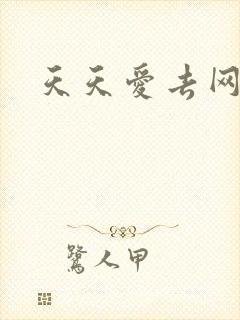 天天爱去网
鹭人甲